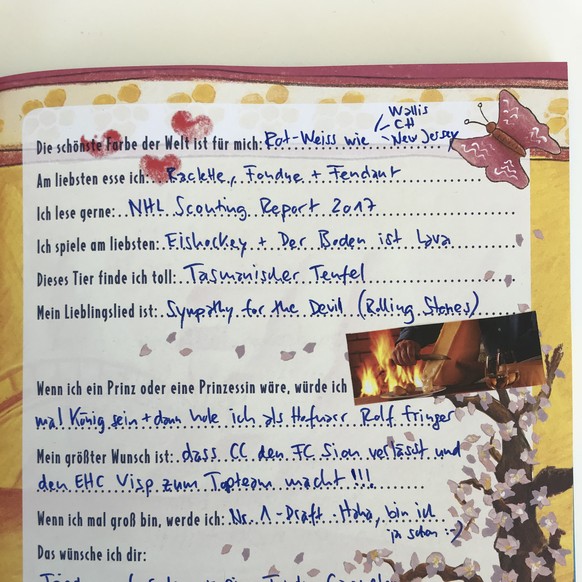 Wallis
CH
New Jersey
Die schönste Farbe der Welt ist für mich: Rot-Weiss wie
Am liebsten esse ich: Raclette, Fondue + Fendant
Ich lese gerne: NHL Scouting Report 2017
Ich spiele am liebsten: Eishockey + Der Boden ist Lava
Dieses Tier finde ich toll: Tasmanischer Teufel
Mein Lieblingslied ist: Sympathy for the Devil (Rolling Stones)
Wenn ich ein Prinz oder eine Prinzessin wäre, würde ich
mal König sein + dann hole ich als Hofnarr Rolf Fringer
Mein größter Wunsch ist: dass CC den FC Sion verlässt und
den EHC Visp zum Topteam macht!!!
Wenn ich mal groß bin, werde ich: Nr. 1-Draft. Haha, bin ich
ja schon :-)
Das wünsche ich dir: